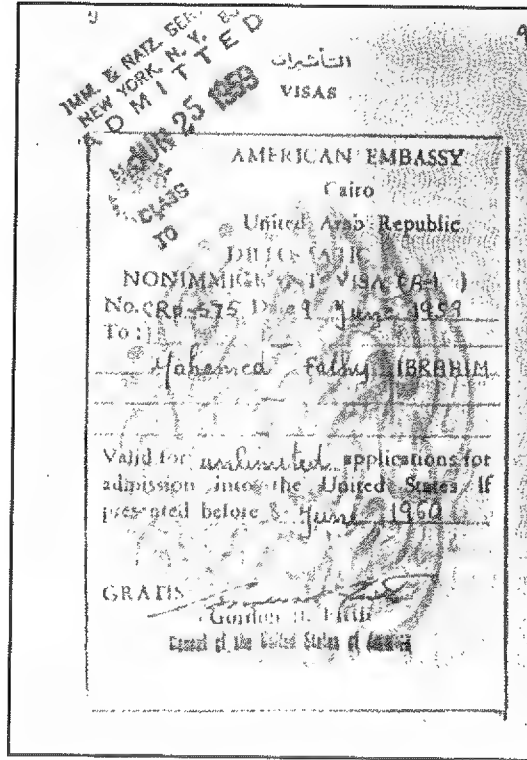 9
IMM. & NATZ. SER
NEW YORK, N. Y.
ADMITTED
JUN 25 1959
CLASS
TO
التأشيرات
VISAS
AMERICAN EMBASSY
Cairo
United Arab Republic
NONIMMIGRANT VISA
June 1959
To:
Mohamed Fathy IBRAHIM
Valid for unlimited applications for
admission into the United States if
presented before 8 June 1960
GRATIS
Gordon
Consul of the United States of America